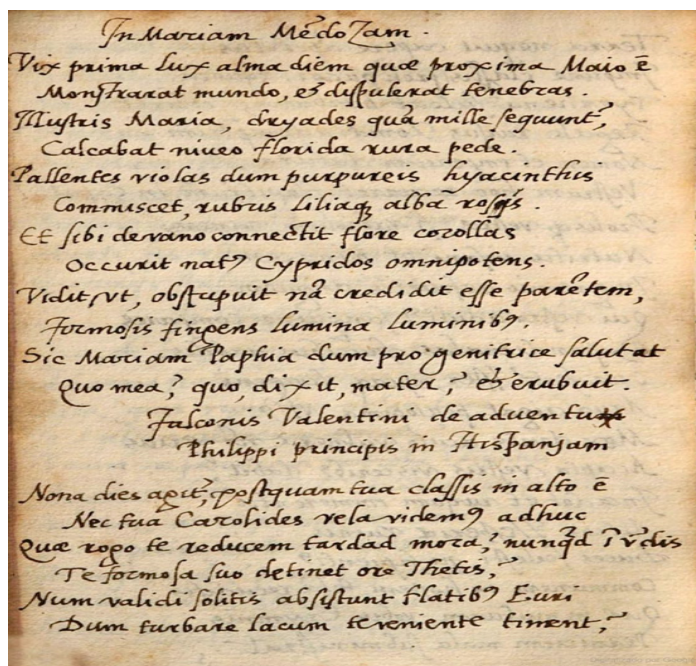 In Mariam Mẽdozam.
Vix prima lux alma diem quæ proxima Maio ẽ
Monstrarat mundo, & dispulerat tenebras.
Illustris Maria, dryades quã mille sequunt᷑,
Calcabat niveo florida rura pede.
Pallentes violas dum purpureis hyacinthis
Commiscet, rubris liliaq; alba rosis.
Et sibi de vano connectit flore corollas
Occurit natꝰ Cypridos omnipotens.
Vidit, ut, obstupuit nã credidit esse parẽtem,
Formosis fingens lumina luminibꝰ.
Sic Mariam Paphia dum pro genitrice salutat
Quo mea? quo, dixit, mater? & erubuit.
Falconis Valentini de adventu
Philippi principis in Hispaniam
Nona dies agit᷑, postquam tua classis in alto ẽ
Nec tua Carolides vela videmꝰ adhuc
Quæ rogo te reducem tardad mora? nunq̃d ĩ ũdis
Te formosa suo detinet ore Thetis?
Num validi solitis absistunt flatibꝰ Euri
Dum turbare lacum te veniente timent?